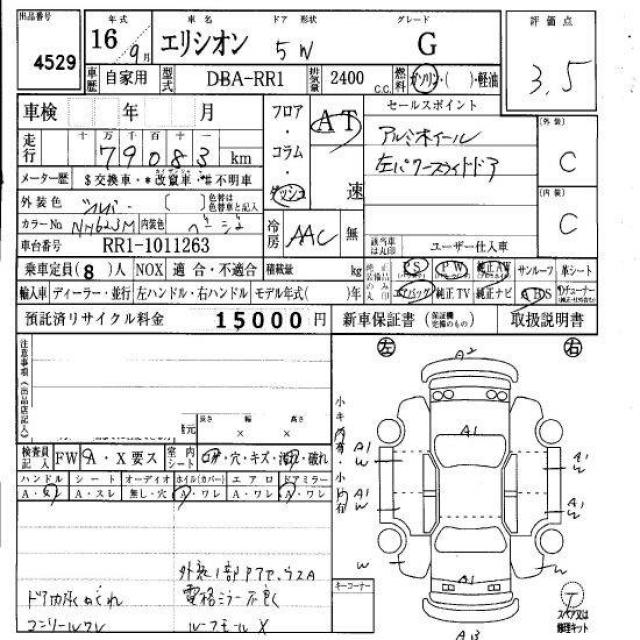 出品番号 年式 車名 ドア 形状 グレード 評価点
4529 16 9月 エリシオン 5W G 3.5
車歴 自家用 型式 DBA-RR1 排気量 2400 C.C. 燃料 ガソリン・( )・軽油
車検 年 月 フロア・コラム・ダッシュ AT 速 セールスポイント
アルミホイール
左パワースライドドア
(外装) C
走行 十 万 千 百 十 一
79083 km
メーター歴 $交換車・*改竄車・#不明車
外装色 シルバー ( ) 色替は色替車と記入
(内装) C
カラーNo NH623M 内装色 ベージュ 冷房 AAC 無
車台番号 RR1-1011263 該当車は丸印 ユーザー仕入車
乗車定員(8)人 NOX 適合・不適合 積載量 kg 純正装備品のみ丸印 PS PW 純正AW サンルーフ 革シート
輸入車 ディーラー・並行 左ハンドル・右ハンドル モデル年式( )年 エアバッグ 純正TV 純正ナビ ABS
預託済リサイクル料金 15000円 新車保証書 取扱説明書
注意事項(出品店記入) 左 右
A2
長さ 幅 高さ
諸元
小キズ有・小凹有
A1
検査員記入 FW A・X要ス 室内シート ・穴・キズ・ ・破れ
A1 W A1 W
ハンドル シート オーディオ ホイル(カバー) エアロ ドアミラー
A・ A・スレ 無し・穴 A・ワレ A・ワレ A・ワレ
A1 W A1 W
A1
W W
外装1部
ドア内張めくれ 電格ミラー不良
コンソールワレ ルーフモールX
キーコーナー
スペア又は修理キット